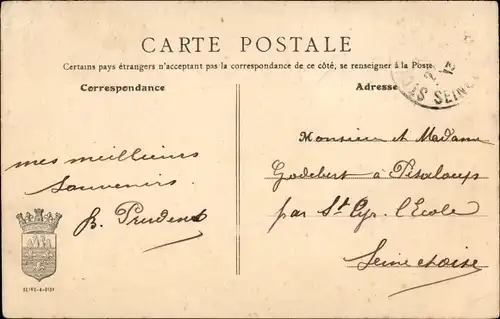 CARTE POSTALE
Certains pays étrangers n'acceptent pas la correspondance de ce côté, se renseigner à la Poste
Correspondance
Adresse
mes meilleurs
souvenirs.
B. Prudent
Monsieur et Madame
Godebert à Pisaloup
par St Cyr. l'Ecole
Seine et oise
SEINE